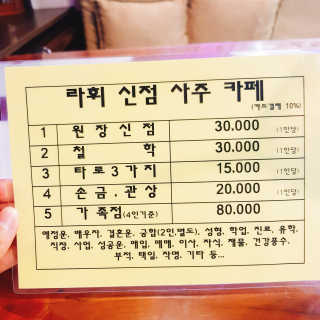 라휘 신점 사주 카페
(카드결제 10%)
1 원장신점 30.000 (1인당)
2 철 학 30.000 (1인당)
3 타로3가지 15.000 (1인당)
4 손금,관상 20.000 (1인당)
5 가족점(4인기준) 80.000
애정운, 배우자, 결혼운, 궁합(2인,별도), 성형, 학업, 진로, 유학,
직장, 사업, 성공운, 매입, 매매, 이사, 자식, 재물, 건강풍수,
부적, 택일, 작명, 기타 등...